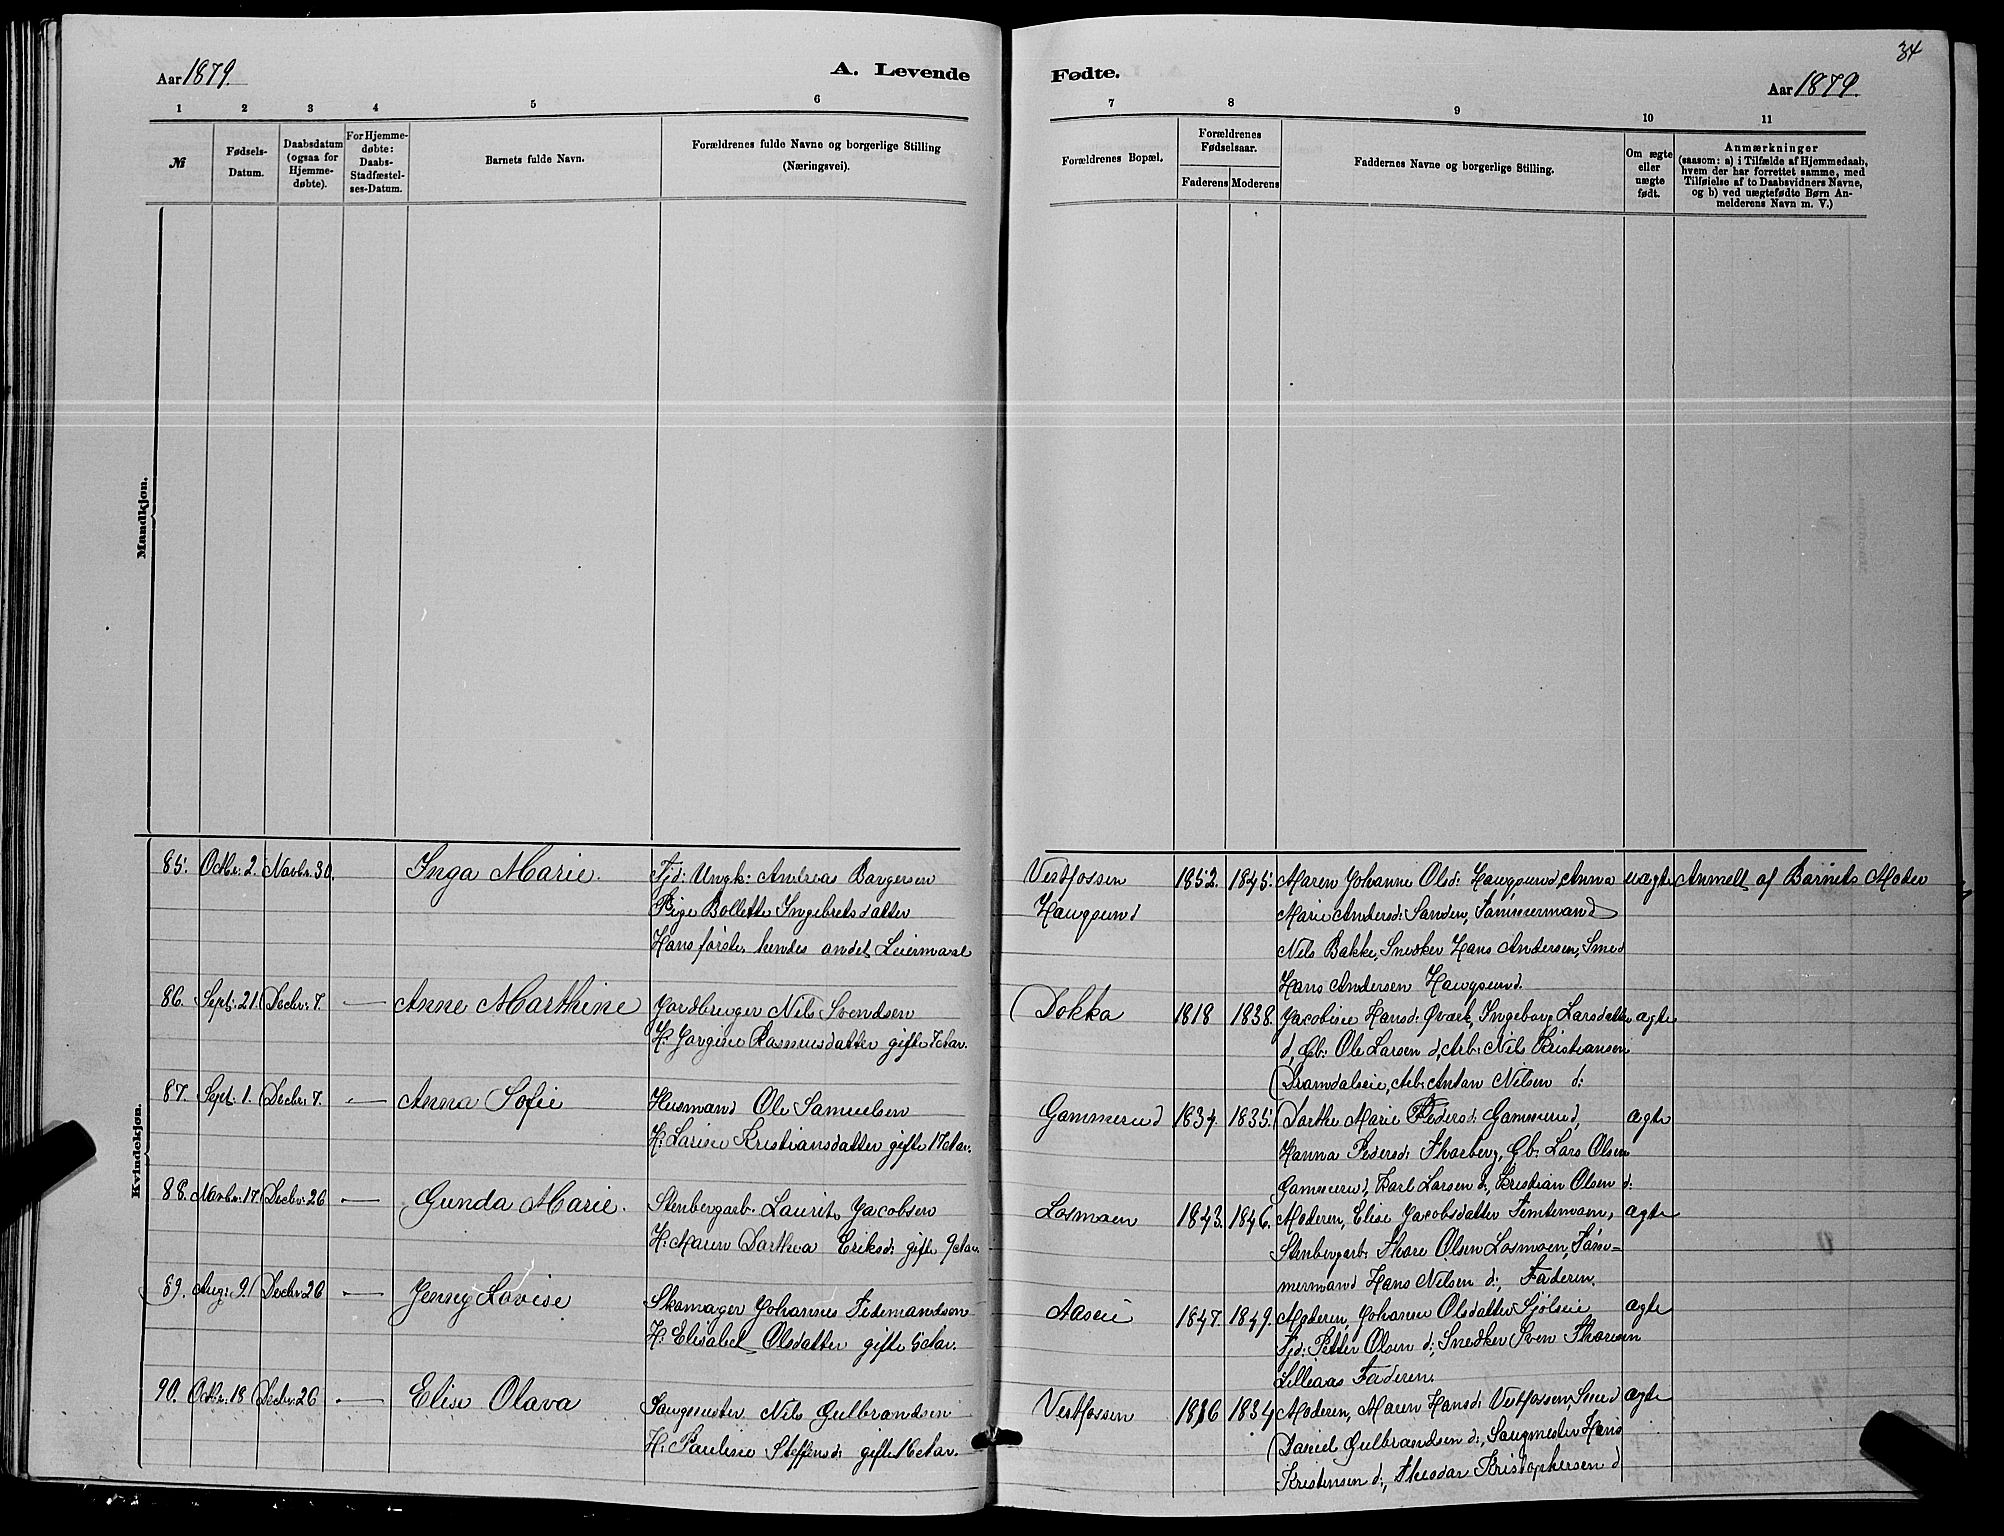 34
Aar 1879.
A. Levende
Fødte.
Aar 1879.
1 2 3 4 5 6
7 8 9 10 11
№
Fødsels-
Datum.
Daabsdatum
(ogsaa for
Hjemme-
døbte).
For Hjemme-
døbte:
Daabs-
Stadfæstel-
ses-Datum.
Barnets fulde Navn.
Forældrenes fulde Navne og borgerlige Stilling
(Næringsvei).
Forældrenes Bopæl.
Forældrenes
Fødselsaar.
Faderens Moderens
Faddernes Navne og borgerlige Stilling.
Om ægte
eller
uægte
født.
Anmærkninger
(saasom: a) i Tilfælde af Hjemmedaab,
hvem der har forrettet samme, med
Tilføielse af to Daabsvidners Navne,
og b) ved uægtefødte Børn An-
melderens Navn m. V.)
Mandkjøn.
Kvindekjøn.
85. Octbr. 2. Novbr. 30. Inga Marie. Tjd: Ungk: Andreas Borgersen
Pige Bollette Ingebretsdatter
Hans første, hendes andet Leiermaal
Vestfossen 1852. 1845. Maren Johanne Olsd: Haugsund, Anna uægte Anmeldt af Barnets Moder
Haugsund Marie Andersd: Sanden, Tømmermand
Nils Bakke, Snedker Hans Andersen, Smed
Hans Andersen Haugsund.
86. Sept: 21. Decbr. 7. — Anne Marthine Jordbruger Nils Svendsen
H: Jørgine Rasmusdatter gifte 7 Aar.
Dokka 1818 1838. Jacobine Hansd: Qværk, Ingeborg Larsdatter ægte
d, Gb: Ole Larsen d, Arb: Nils Kristiansen
Dramdalseie, Arb: Anton Nilsen d:
87. Sept. 1. Decbr. 7. — Anna Sofie Husmand Ole Samuelsen
H: Larine Kristiansdatter gifte 17 Aar.
Gommerud 1834. 1835. Dorthe Marie Pedersd: Gommerud, ægte
Hanna Pedersd: Thorberg, Gb: Lars Olsen
Gommerud, Karl Larsen d:, Kristian Olsen d:
88. Novbr. 17. Decbr. 26 — Gunda Marie. Stenbergarb. Laurits Jacobsen
H: Maren Dorthea Eriksd: gifte 9 Aar.
Losmoen 1843. 1846. Moderen, Elise Jacobsdatter Temtemoen, ægte
Stenbergarb: Thore Olsen Losmoen, Tøm-
mermand Hans Nilsen d:, Faderen.
89. Aug: 9. Decbr. 26 — Jenny Lovise Skomager Johannes Tidemandsen
H: Elisabet Olsdatter gifte 5 Aar.
Aaseie 1847. 1849. Moderen, Johanne Olsdatter Sjølseie ægte
Tjd: Petter Olsen d:, Snedker Sven Thoresen
Lilleaas Faderen.
90. Octbr. 18 Decbr. 26 — Elise Olava Saugmester Nils Gulbrandsen
H: Pauline Steffensd: gifte 16 Aar.
Vestfossen 1836 1834 Moderen, Maren Hansd: Vestfossen, Smed ægte
Daniel Gulbrandsen d:, Saugmester Hans
Kristensen d:, Theodor Kristophersen d